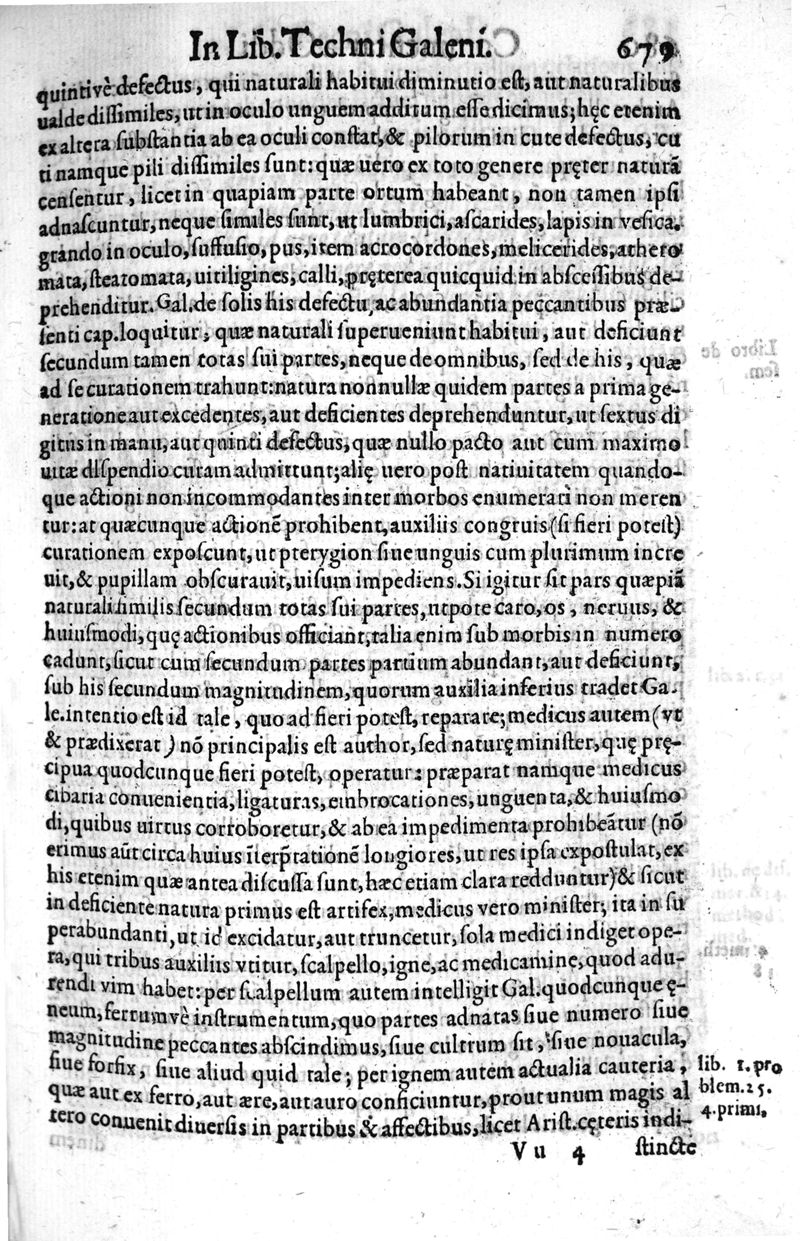 In Lib. Techni Galeni. 679
quintivè defectus, qui naturali habitui diminutio est, aut naturalibus
ualde dissimiles, ut in oculo unguem additum esse dicimus; hęc etenim
ex altera substantia ab ea oculi constat, & pilorum in cute defectus, cu
ti namque pili dissimiles sunt: quæ uero ex toto genere pręter naturā
censentur, licet in quapiam parte ortum habeant, non tamen ipsi
adnascuntur, neque similes sunt, ut lumbrici, ascarides, lapis in vesica.
grando in oculo, suffusio, pus, item acrocordones, melicerides, athero
mata, steatomata, uitiligines, calli, pręterea quicquid in abscessibus de-
prehenditur. Gal. de solis his defectu, ac abundantia peccantibus præ-
senti cap. loquitur; quæ naturali superueniunt habitui, aut deficiunt
secundum tamen totas sui partes, neque de omnibus, sed de his, quæ
ad se curationem trahunt: natura nonnullæ quidem partes a prima ge-
neratione aut excedentes, aut deficientes deprehenduntur, ut sextus di
gitus in manu, aut quinti defectus, quæ nullo pacto aut cum maximo
uitæ dispendio curam admittunt; alię uero post natiuitatem quando-
que actioni non incommodantes inter morbos enumerari non meren
tur: at quæcunque actionē prohibent, auxiliis congruis (si fieri potest)
curationem exposcunt, ut pterygion siue unguis cum plurimum incre
uit, & pupillam obscurauit, uisum impediens. Si igitur sit pars quæpiā
naturali similis secundum totas sui partes, utpote caro, os, neruus, &
huiusmodi, quę actionibus officiant, talia enim sub morbis in numero
cadunt, sicut cum secundum partes partium abundant, aut deficiunt,
sub his secundum magnitudinem, quorum auxilia inferius tradet Ga.
le. intentio est id tale, quo ad fieri potest, reparare; medicus autem (vt
& prædixerat) nō principalis est author, sed naturę minister, quę prę-
cipua quodcunque fieri potest, operatur: præparat namque medicus
cibaria conuenientia, ligaturas, embrocationes, unguenta, & huiusmo
di, quibus uirtus corroboretur, & ab ea impedimenta prohibeātur (nō
erimus aūt circa huius īterp̄tationē longiores, ut res ipsa expostulat, ex
his etenim quæ antea discussa sunt, hæc etiam clara redduntur) & sicut
in deficiente natura primus est artifex, medicus vero minister; ita in su
perabundanti, ut id excidatur, aut truncetur, sola medici indiget ope-
ra, qui tribus auxiliis vtitur, scalpello, igne, ac medicamine, quod adu-
rendi vim habet: per scalpellum autem intelligit Gal. quodcunque ę-
neum, ferrumvè instrumentum, quo partes adnatas siue numero siue
magnitudine peccantes abscindimus, siue cultrum sit, siue nouacula,
siue forfix, siue aliud quid tale; per ignem autem actualia cauteria,
quæ aut ex ferro, aut ære, aut auro conficiuntur, prout unum magis al
tero conuenit diuersis in partibus & affectibus, licet Arist. cęteris indi-
lib. 1. pro
blem. 25.
4. primi.
Vu 4 stincte